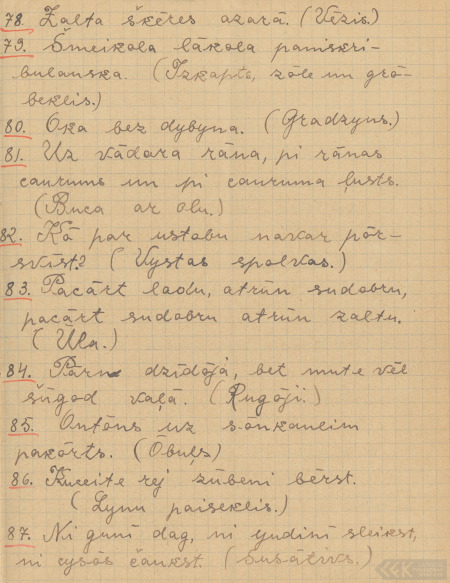 78. Zalta škēres azarā. (Vēzis.)
79. Šmeikola lākola pamiskri-
bulauska. (Izkapts, zōle un grō-
beklis.)
80. Oka bez dybyna. (Gradzyns.)
81. Uz vādara rāna, pi rānas
caurums un pi cauruma ļusts.
(Buca ar olu.)
82. Kō par ustobu navar pōr-
svīst? (Vystas spolvas.)
83. Pacārt ladu, atrūn sudobru,
pacārt sudobru atrūn zaltu.
(Ūla.)
84. Pārn dzīdōjā, bet mute vēl
šūgod vaļā. (Rugōji.)
85. Ontōns uz
pakōrts. (Ōbuļs)
86. rej zūbeni bērst.
(Lynu paiseklis.)
87. Ni gunī dag, ni yudinī sleikst,
ni cysōs čaukst. (Susātivks.)